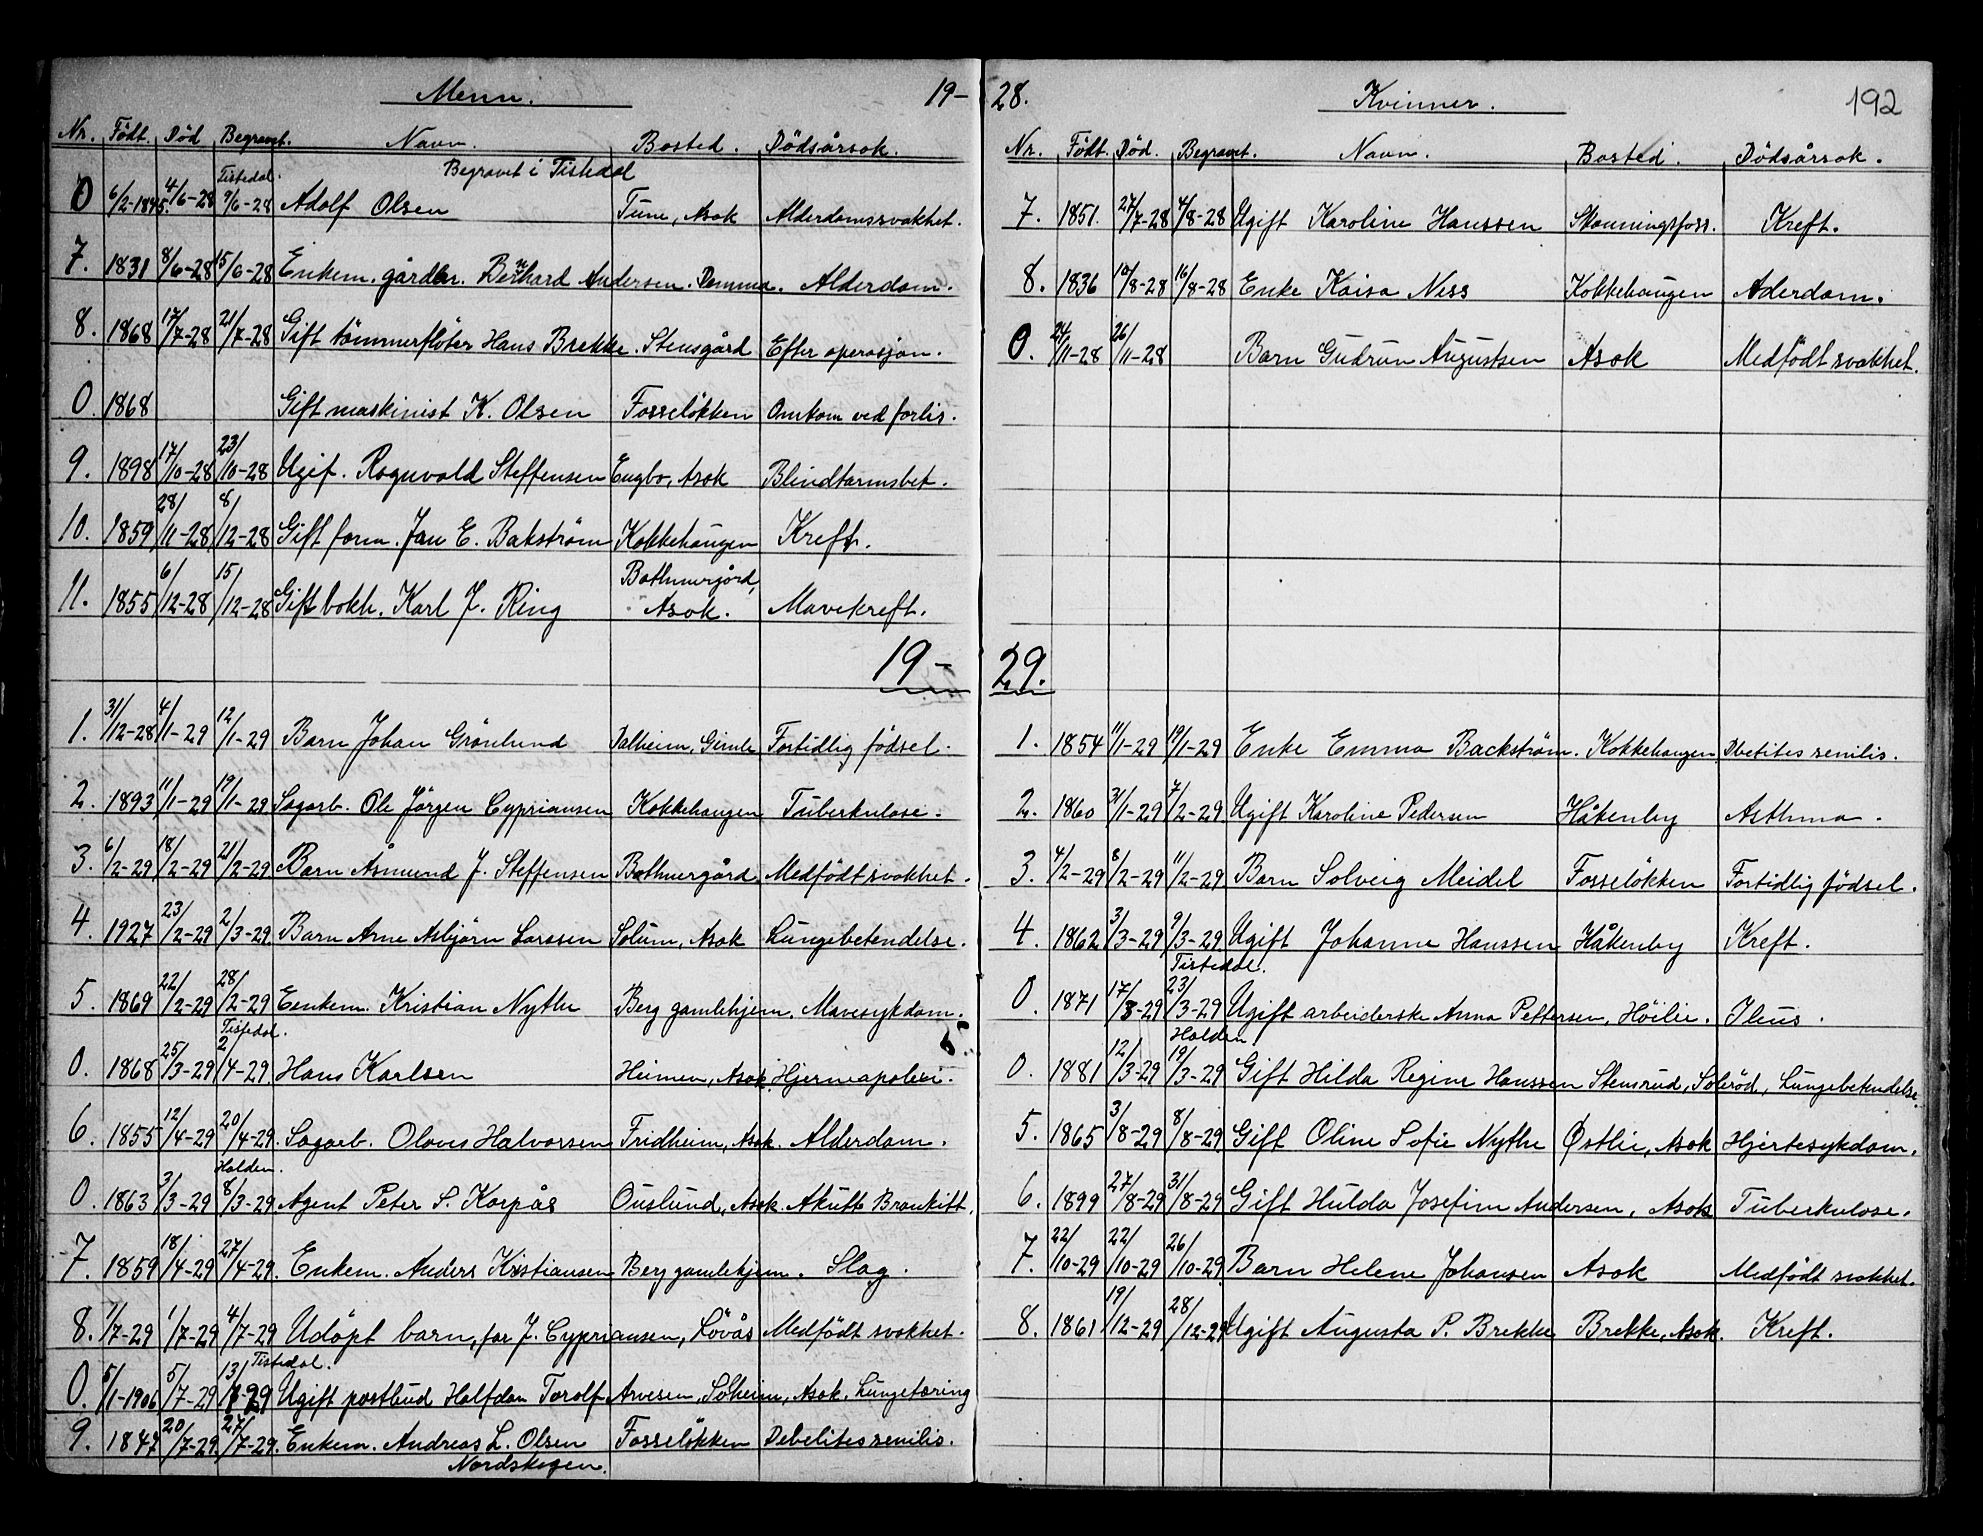 Menn. 19-
Nr. Født. Död Begravet. Navn. Bosted. Dödsårsak.
Tistedal. Begravet i Tistedal
0 6/2-1845. 4/6-28 9/6-28 Adolf Olsen Tune, Asak Alderdomssvakhet.
7. 1831 8/6-28 15/6-28 Enkem. gårdbr. Bernhard Andersen. Demma. Alderdom.
8. 1868 17/7-28 21/7-28 Gift tömmerflöter Hans Brekke. Stensgård Efter operasjon.
0. 1868 Gift maskinist K. Olsen Fosselökken Omkom ved forlis.
9. 1898 17/10-28 23/10-28 Ugif. Rognvald Steffensen Engbo, Asak Blindtarmsbet.
10. 1859 28/11-28 8/12-28 Gift form. Jan E. Bakström Kokkehaugen Kreft.
11. 1855 6/12-28 15/12-28 Gift bokh. Karl J. Ring Bothnergård, Asak. Mavekreft.
19-
1. 31/12-28 4/1-29 12/1-29 Barn Johan Grönlund Solheim, Gimle Fortidlig födsel.
2. 1893 11/1-29 19/1-29 Sagarb. Ole Jörgen Cypriansen Kokkehaugen Tuberkulose.
3. 6/2-29 18/2-29 21/2-29 Barn Åsmund J. Steffensen Bothnergård. Medfödt svakhet.
4. 1927 23/2-29 2/3-29. Barn Arne Asbjörn Larssen Solum, Asak Lungebetendelse.
5. 1869 22/2-29 28/2-29 Eenkem. Kristian Nythe Berg gamlehjem. Mavesykdom.
Tistedal.
0. 1868 25/3-29 2/4-29. Hans Karlsen Heimen, Asak. Hjerneapolexi.
6. 1855 12/4-29 20/4-29. Sagarb. Olaves Halvorsen Fridheim, Asak. Alderdom.
Halden.
0. 1863 3/3-29 8/3-29. Agent Peter S. Korpås Ouslund, Asak. Akutt Bronkitt.
7. 1859 18/4-29 27/4-29. Enkem. Anders Kristiansen Berg gamlehjem. Slag.
8. 1/7-29 1/7-29 4/7-29 Udöpt barn, far J. Cypriansen, Lövås Medfödt svakhet.
Tistedal.
0. 5/1-1906 5/7-29 13/7-29 Ugift postbud Halfdan Torolf Arvesen, Solheim, Asak. Lungetæring
9. 1847 20/7-29. 27/7-29. Enkem. Andreas L. Olsen Fosselökken Debelites senilis.
Nordskogen.
28. Kvinner. 192
Nr. Født. Død. Begravet. Navn. Bosted. Dödsårsak.
7. 1851. 27/7-28 4/8-28 Ugift Karoline Hanssen Skonningsfoss. Kreft.
8. 1836 10/8-28 16/8-28 Enke Kaisa Ness Kokkehaugen Aderdom.
0. 24/11-28 26/11-28 Barn Gudrun Augustsen Asak Medfödt svakhet.
29.
1. 1854 11/1-29 19/1-29 Enke Emma Backström. Kokkehaugen Dbetites senilis.
2. 1860 31/1-29 7/2-29. Ugift Karoline Pedersen Håkenby Asthma.
3. 4/2-29 8/2-29 11/2-29 Barn Solveig Meidel Fosselökken Fortidlig födsel.
4. 1862 3/3-29 9/3-29 Ugift Johanne Hanssen Håkenby Kreft.
Tistedal.
0. 1871 17/3-29 23/3-29 Ugift arbeiderske Anna Pettersen, Höilie. Ileus.
Halden.
0. 1881 12/3-29 19/3-29 Gift Hilda Regine Hanssen Stemrud, Soleröd, Lungebetendelse.
5. 1865 3/8-29 8/8-29. Gift Oline Sofie Nythe Østlie, Asak Hjertesykdom.
6. 1899 27/8-29 31/8-29 Gift Hulda Josefine Andersen, Asak Tuberkulose.
7. 22/10-29 22/10-29 26/10-29 Barn Helene Johansen Asak Medfödt svakhet.
8. 1861 19/12-29 28/12-29 Ugift Augusta P. Brekke Brekke, Asak. Kreft.